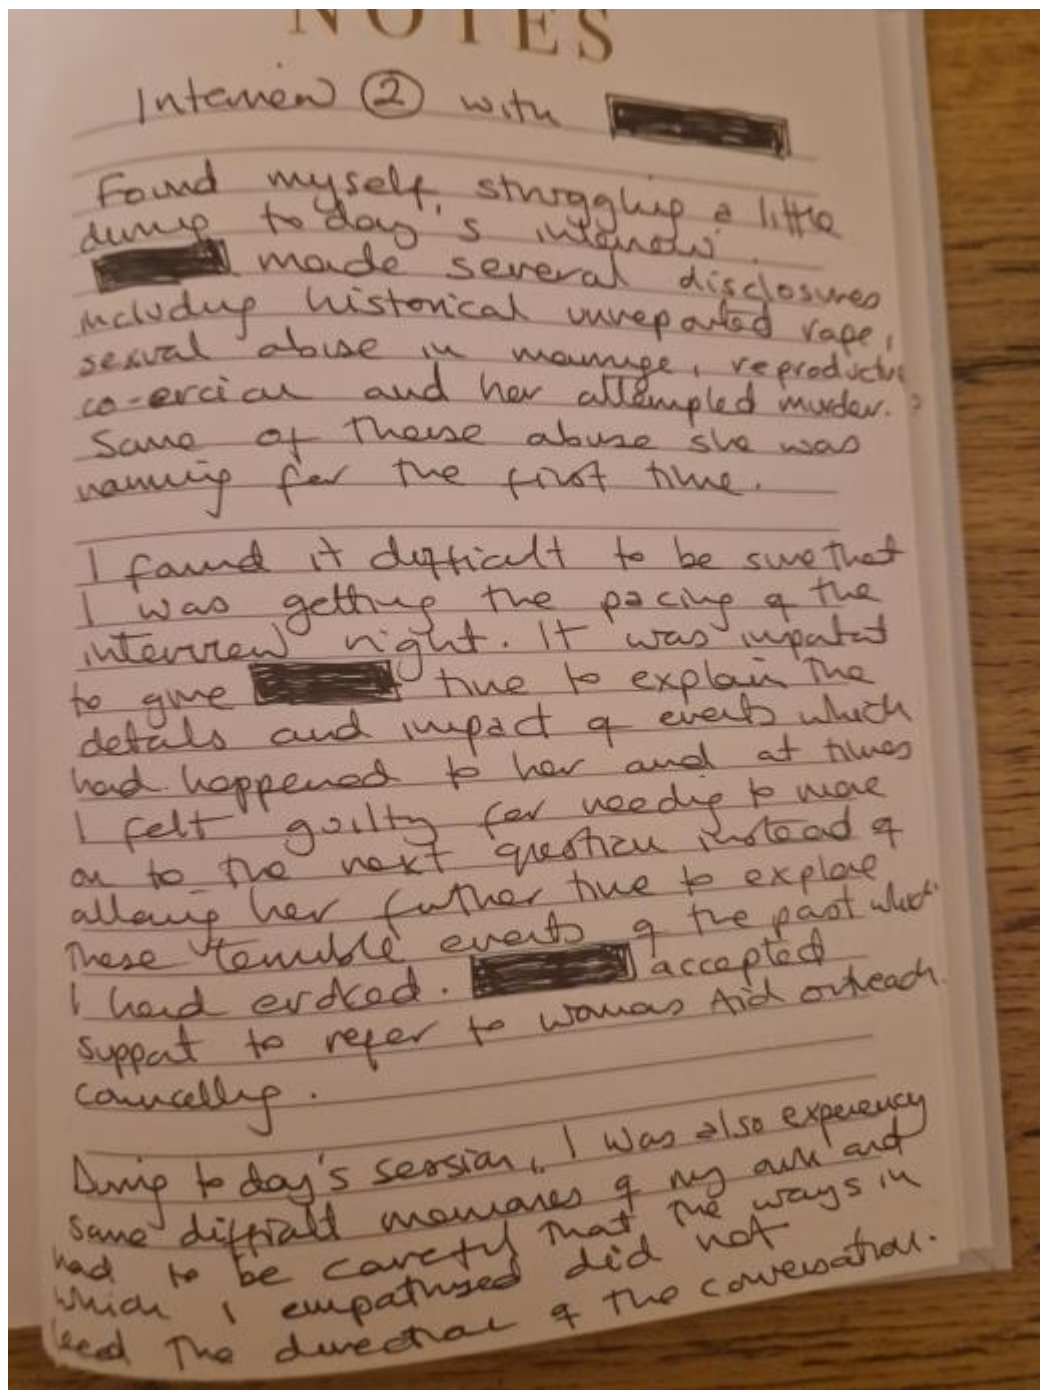 NOTES
Interview 2 with
Found myself struggling a little
during today's interview.
made several disclosures
including historical unreported rape,
sexual abuse in marriage, reproductive
co-ercion and her attempted murder.
Some of these abuse she was
naming for the first time.
I found it difficult to be sure that
I was getting the pacing of the
interview right. It was important
to give time to explain the
details and impact of events which
had happened to her and at times
I felt guilty for needing to move
on to the next question instead of
allowing her further time to explore
these terrible events of the past which
I had evoked. accepted
support to refer to womans Aid outreach
councelling.
During today's session, I was also experiency
some difficult memories of my own and
had to be careful that the ways in
which I empathised did not
lead the direction of the conversation.